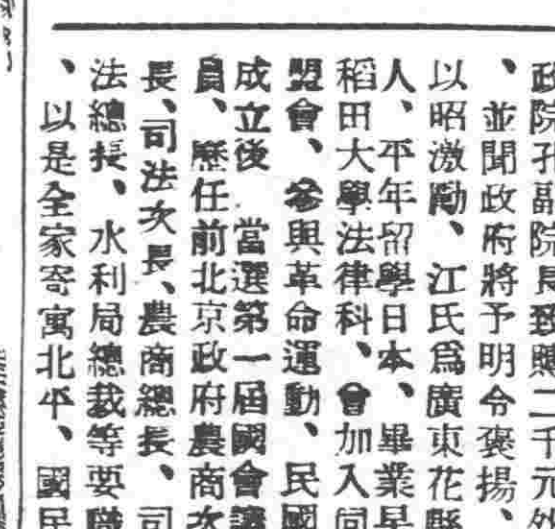 政院孔副院長致賻二千元外
、並聞政府將予明令褒揚、
以昭激勵、江氏爲廣東花縣
人、平年留學日本、畢業早
稻田大學法律科、會加入同
盟會、參與革命運動、民國
成立後、當選第一屆國會議
員、歷任前北京政府農商次
長、司法次長、農商總長、司
法總長、水利局總裁等要職
、以是全家寄寓北平、國民